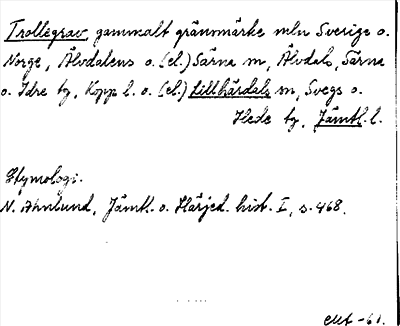 Trollegrav, gammalt gränsmärke mln Sverige o.
Norge, Älvdalens o. (el.) Särna m, Älvdals, Särna
o. Idre tg, Kopp l. o. (el.) Lillhärdals m, Svegs o.
Hede tg, Jämtl. l.
Etymologi.
N. Ahnlund, Jämtl. o. Härjed. hist. I, s. 468.
-61.